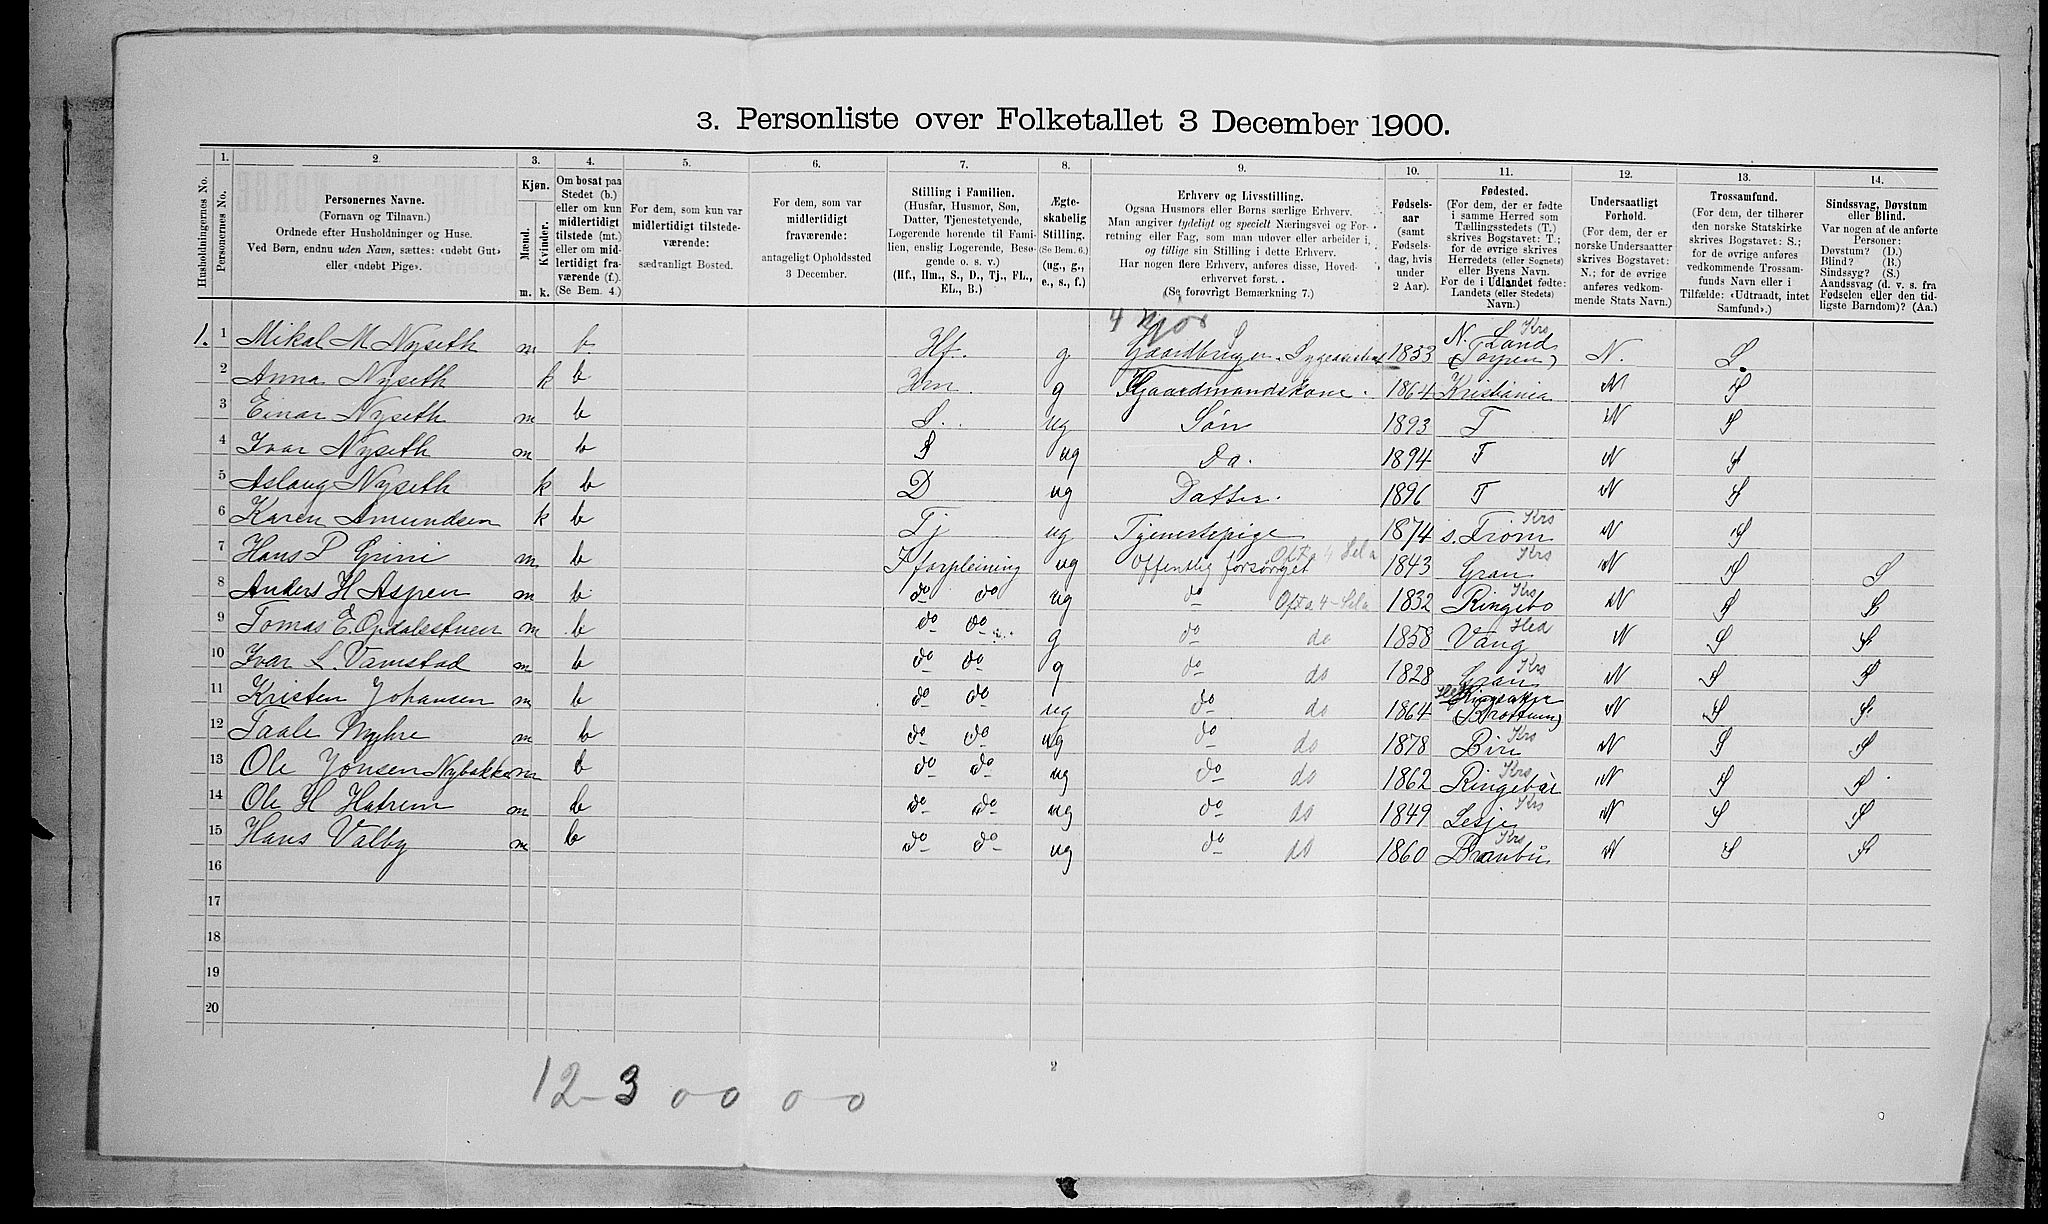 3. Personliste over Folketallet 3 December 1900.
Husholdningernes No.
1.
Personernes No.
2.
Personernes Navne.
(Fornavn og Tilnavn.)
Ordnede efter Husholdninger og Huse.
Ved Børn, endnu uden Navn, sættes: «udøbt Gut»
eller «udøbt Pige».
3.
Kjøn.
Mænd.
Kvinder.
m. k.
4.
Om bosat paa
Stedet (b.)
eller om kun
midlertidigt
tilstede (mt.)
eller om mid-
lertidigt fra-
værende (f.).
(Se Bem. 4.)
5.
For dem, som kun var
midlertidigt tilstede-
værende:
sædvanligt Bosted.
6.
For dem, som var
midlertidigt
fraværende:
antageligt Opholdssted
3 December.
7.
Stilling i Familien.
(Husfar, Husmor, Søn,
Datter, Tjenestetyende,
Logerende hørende til Fami-
lien, enslig Logerende, Besø-
gende o. s. v.)
(Hf., Hm., S., D., Tj., FL.,
EL., B.)
8.
Ægte-
skabelig
Stilling.
(Se Bem. 6.)
(ug., g.,
e., s., f.)
9.
Erhverv og Livsstilling.
Ogsaa Husmors eller Børns særlige Erhverv.
Man angiver tydeligt og specielt Næringsvei og For-
retning eller Fag, som man udøver eller arbeider i,
og tillige sin Stilling i dette Erhverv.
Har nogen flere Erhverv, anføres disse, Hoved-
erhvervet først.
(Se forøvrigt Bemærkning 7.)
10.
Fødsels-
aar
(samt
Fødsels-
dag, hvis
under
2 Aar).
11.
Fødested.
(For dem, der er fødte
i samme Herred som
Tællingsstedets (T.)
skrives Bogstavet: T.;
for de øvrige skrives
Herredets (eller Sognets)
eller Byens Navn.
For de i Udlandet fødte:
Landets (eller Stedets)
Navn.)
12.
Undersaatligt
Forhold.
(For dem, der er
norske Undersaatter
skrives Bogstavet:
N.; for de øvrige
anføres vedkom-
mende Stats Navn.)
13.
Trossamfund.
(For dem, der tilhører
den norske Statskirke
skrives Bogstavet: S.;
for de øvrige anføres
vedkommende Trossam-
funds Navn eller i
Tilfælde: «Udtraadt, intet
Samfund».)
14.
Sindssvag, Døvstum
eller Blind.
Var nogen af de anførte
Personer:
Døvstum? (D.)
Blind? (B.)
Sindssyg? (S.)
Aandssvag (d. v. s. fra
Fødselen eller den tid-
ligste Barndom)? (Aa.)
1. 1 Mikal M. Nyseth m b. Hf. g. Gaardbruger. 1853 N. Land Krs (Torpen) N. S.
2 Anna Nyseth k b Hm. g Gaardmandskone. 1864 Kristiania N S
3 Einar Nyseth m b S. ug Søn 1893 T N S
4 Ivar Nyseth m b S ug Do. 1894 T N S
5 Aslaug Nyseth k b D ug Datter. 1896 T N S
6 Karen Amundsen k b Tj ug Tjenestepige 1874 s. From Krs N S
7 Hans P Grini m b I forpleining ug Offentlig forsørget 1843 Gran Krs N S S
8 Anders H Aspen m b do do ug do 1832 Ringebo Krs N S S
9 Tomas E. Opdalestuen m b do do g do do 1858 Vang Hed N S S
10 Ivar L. Vamstad m b do do g do do 1828 Gran Krs N S S
11 Kristen Johansen m b do do ug do do 1864 Ringsaker (Brøttum) N S S
12 Taale Myhre m b do do ug do do 1878 Biri Krs N S S
13 Ole Jonsen Nybakke m b do do ug do do 1862 Ringebør Krs N S S
14 Ole H Hatrem m b do do ug do do 1849 Lesje Krs N S S
15 Hans Valby m b do do ug do do 1860 Branbu Krs N S S
16
17
18
19
20
2
12-3 0-0 0-0